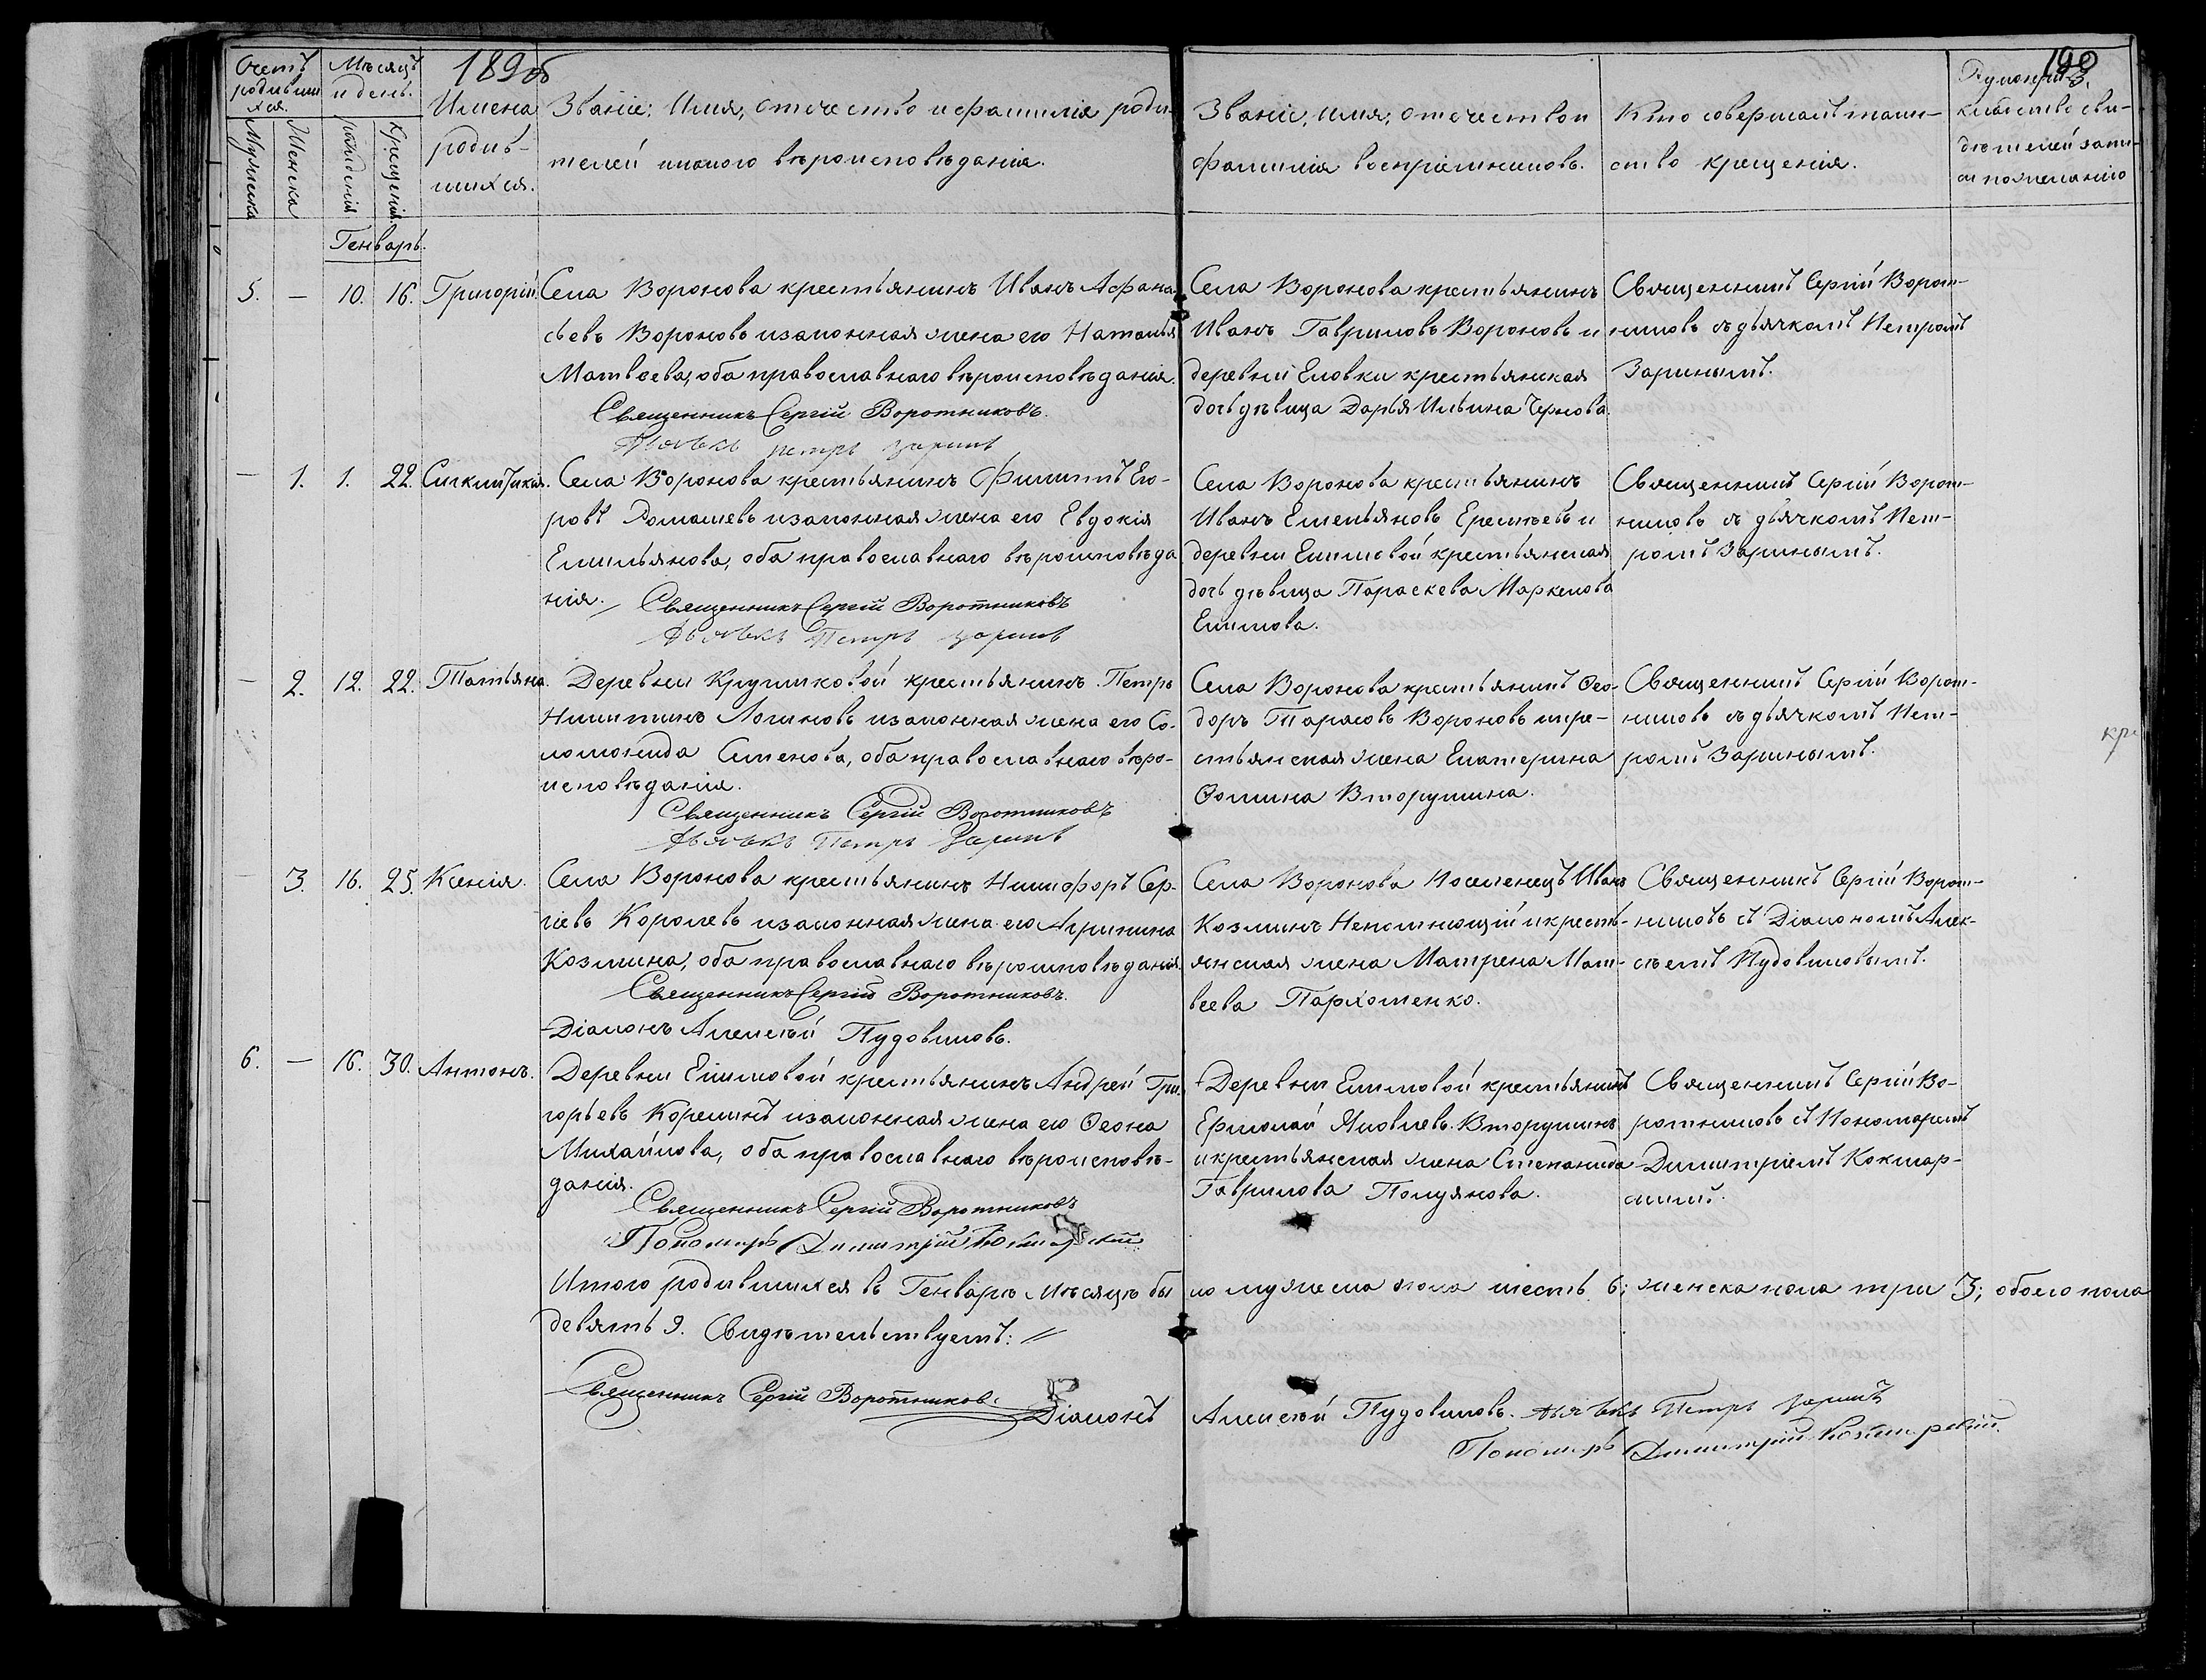 189об
190
3.
Счетъ родившихся.
Мужеска
Женска
Мѣсяцъ и день.
рожденія
Крещенія
Имена родив-
шихся.
Званіе, Имя, отечество и фамилія роди-
телей и какого вѣроисповѣданія.
Званіе, имя, отечество и
фамилія воспріемниковъ.
Кто совершалъ таин-
ство крещенія.
Рукоприк-
ладство сви-
дѣтелей запи-
си по желанію
Генварь.
5. — 10. 16. Григорій.
Села Воронова крестьянинъ Иванъ Афана-
сьевъ Вороновъ и законная жена его Наталья
Матвѣева, оба православнаго вѣроисповѣданія.
Священникъ Сергій Воротниковъ.
Дьячекъ Петръ Заринъ
Села Воронова крестьянинъ
Иванъ Гавриловъ Вороновъ и
деревни Еловки крестьянская
дочь дѣвица Дарья Ильина Чернова.
Священникъ Сергій Ворот-
никовъ съ дьячкомъ Петромъ
Заринымъ.
— 1. 1. 22. Сигклитикія.
Села Воронова крестьянинъ Филиппъ Его-
ровъ Ромашевъ и законная жена его Евдокія
Емильянова, оба православнаго вѣроисповѣда
нія.
Священникъ Сергій Воротниковъ
Дьячекъ Петръ Заринъ
Села Воронова крестьянинъ
Иванъ Емельяновъ Еремѣевъ и
деревни Екимовой крестьянская
дочь дѣвица Параскева Маркелова
Екимова.
Священникъ Сергій Ворот-
никовъ съ дьячкомъ Пет-
ромъ Заринымъ.
— 2. 12. 22. Татьяна.
Деревни Кругликовой крестьянинъ Петръ
Никитинъ Логиновъ и законная жена его Со-
ломонида Семенова, оба православнаго вѣро-
исповѣданія.
Священникъ Сергій Воротниковъ
Дьячекъ Петръ Заринъ
Села Воронова крестьянинъ Ѳео-
доръ Тарасовъ Вороновъ и кре-
стьянская жена Екатерина
Ѳомина Вторушина.
Священникъ Сергій Ворот-
никовъ съ дьячкомъ Пет-
ромъ Заринымъ.
кре
— 3. 16. 25. Ксенія.
Села Воронова крестьянинъ Никифоръ Сер-
гіевъ Королевъ и законная жена его Агрипина
Козмина, оба православнаго вѣроисповѣданія.
Священникъ Сергій Воротниковъ.
Діаконъ Алексѣй Пудовиковъ.
Села Воронова Поселенецъ Иванъ
Козминъ Непомнющій и кресть-
янская жена Матрена Мат-
веева Пархоменко.
Священникъ Сергій Ворот-
никовъ съ Діакономъ Алек-
сѣемъ Пудовиковымъ.
6. — 16. 30. Антонъ.
Деревни Екимовой крестьянинъ Андрей Гри-
горьевъ Корекинъ и законная жена его Ѳеона
Михайлова, оба православнаго вѣроисповѣ-
данія.
Священникъ Сергій Воротниковъ
Пономарь Димитрій Кокшарскій
Деревни Екимовой крестьянинъ
Ермолай Яковлевъ Вторушинъ
и крестьянская жена Степанида
Гаврилова Полуянова.
Священникъ Сергій Во-
ротниковъ съ Пономаремъ
Димитріемъ Кокшар-
скимъ.
Итого родившихся въ Генварѣ мѣсяцѣ бы ло мужеска пола шесть 6; женска пола три 3; обоего пола
девять 9. Свидѣтельствуетъ: //
Священникъ Сергій Воротниковъ. Діаконъ Алексѣй Пудовиковъ. Дьячекъ Петръ Заринъ
Пономарь Димитрій Кокшарскій.